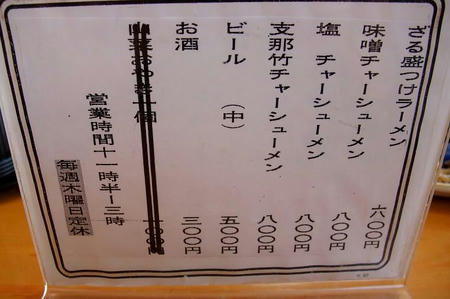 ざる盛つけラーメン 六〇〇円
味噌チャーシューメン 八〇〇円
塩 チャーシューメン 八〇〇円
支那竹チャーシューメン 八〇〇円
ビール (中) 五〇〇円
お酒 三〇〇円
山菜おやき一個 一〇〇円
営業時間十一時半ー三時
毎週木曜日定休